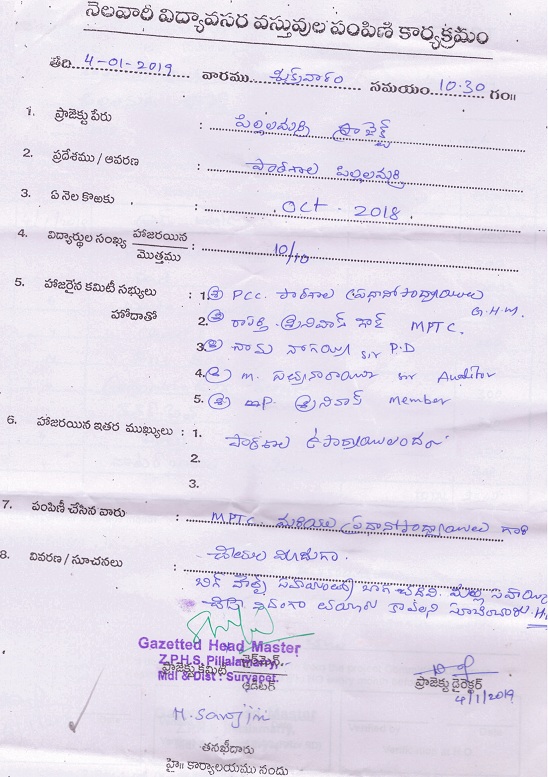 నెలవారి విద్యావసర వస్తువుల పంపిణి కార్యక్రమం
తేది 4-01-2019 వారము శుక్రవారం సమయం 10.30 గం॥
1. ప్రాజెక్టు పేరు : పిల్లలమర్రి ప్రాజెక్ట్
2. ప్రదేశము / ఆవరణ : పాఠశాల పిల్లలమర్రి
3. ఏ నెల కొఱకు : OCT - 2018.
4. విద్యార్థుల సంఖ్య హాజరయిన / మొత్తము : 10/10
5. హాజరైన కమిటీ సభ్యులు : 1. శ్రీ PCC. పాఠశాల ప్రధానోపాధ్యాయులు G.H.M.
హోదాతో 2. శ్రీ శ్రీనివాస్ MPTC.
3. శ్రీ నాగయ్య sir P.D
4. శ్రీ m. సత్యనారాయణ sir Auditor
5. శ్రీ p. శ్రీనివాస్ member
6. హాజరయిన ఇతర ముఖ్యులు : 1. పాఠశాల ఉపాధ్యాయులందరు
2.
3.
7. పంపిణీ చేసిన వారు : MPTC. మరియు ప్రధానోపాధ్యాయులు గారి
8. వివరణ / సూచనలు : చేతుల మీదుగా.
బాగా చదివి
Gazetted Head Master
Z.P.H.S, Pillalamarri
Mdl & Dist : Suryapet.
ప్రాజెక్టు కమిటి చైర్మైన్
ఆడిటర్
ప్రాజెక్టు డైరెక్టర్
4/1/2019
H. Sarojini
తనఖీదారు
హై॥ కార్యాలయము నందు